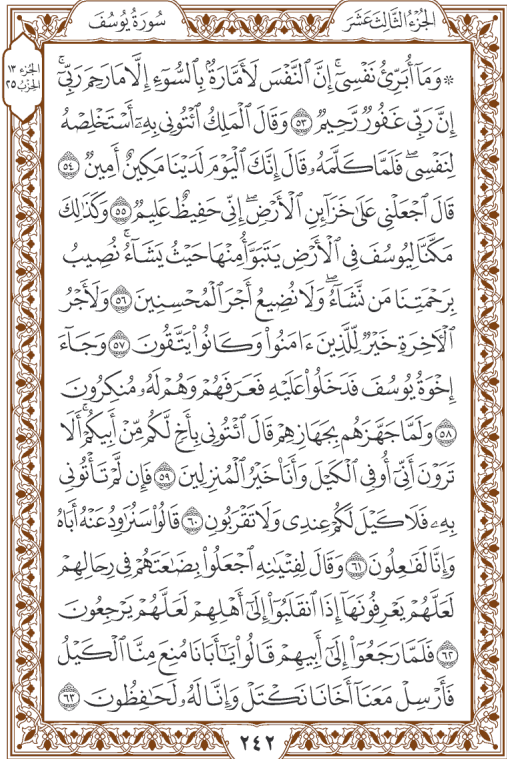 الجُزْءُ الثَّالِثَ عَشَرَ
سُورَةُ يُوسُفَ
الجُزء ١٣
الحِزْبُ ٢٥
۞ وَمَآ أُبَرِّئُ نَفْسِيٓۚ إِنَّ ٱلنَّفْسَ لَأَمَّارَةُۢ بِٱلسُّوٓءِ إِلَّا مَا رَحِمَ رَبِّيٓۚ
إِنَّ رَبِّي غَفُورٞ رَّحِيمٞ ٥٣ وَقَالَ ٱلْمَلِكُ ٱئْتُونِي بِهِۦٓ أَسْتَخْلِصْهُ
لِنَفْسِيۖ فَلَمَّا كَلَّمَهُۥ قَالَ إِنَّكَ ٱلْيَوْمَ لَدَيْنَا مَكِينٌ أَمِينٞ ٥٤
قَالَ ٱجْعَلْنِي عَلَىٰ خَزَآئِنِ ٱلْأَرْضِۖ إِنِّي حَفِيظٌ عَلِيمٞ ٥٥ وَكَذَٰلِكَ
مَكَّنَّا لِيُوسُفَ فِي ٱلْأَرْضِ يَتَبَوَّأُ مِنْهَا حَيْثُ يَشَآءُۚ نُصِيبُ
بِرَحْمَتِنَا مَن نَّشَآءُۖ وَلَا نُضِيعُ أَجْرَ ٱلْمُحْسِنِينَ ٥٦ وَلَأَجْرُ
ٱلْأٓخِرَةِ خَيْرٞ لِّلَّذِينَ ءَامَنُوا۟ وَكَانُوا۟ يَتَّقُونَ ٥٧ وَجَآءَ
إِخْوَةُ يُوسُفَ فَدَخَلُوا۟ عَلَيْهِ فَعَرَفَهُمْ وَهُمْ لَهُۥ مُنكِرُونَ
٥٨ وَلَمَّا جَهَّزَهُم بِجَهَازِهِمْ قَالَ ٱئْتُونِي بِأَخٖ لَّكُم مِّنْ أَبِيكُمْۚ أَلَا
تَرَوْنَ أَنِّيٓ أُوفِي ٱلْكَيْلَ وَأَنَا۠ خَيْرُ ٱلْمُنزِلِينَ ٥٩ فَإِن لَّمْ تَأْتُونِي
بِهِۦ فَلَا كَيْلَ لَكُمْ عِندِي وَلَا تَقْرَبُونِ ٦٠ قَالُوا۟ سَنُرَٰوِدُ عَنْهُ أَبَاهُ
وَإِنَّا لَفَٰعِلُونَ ٦١ وَقَالَ لِفِتْيَٰنِهِ ٱجْعَلُوا۟ بِضَٰعَتَهُمْ فِي رِحَالِهِمْ
لَعَلَّهُمْ يَعْرِفُونَهَآ إِذَا ٱنقَلَبُوٓا۟ إِلَىٰٓ أَهْلِهِمْ لَعَلَّهُمْ يَرْجِعُونَ
٦٢ فَلَمَّا رَجَعُوٓا۟ إِلَىٰٓ أَبِيهِمْ قَالُوا۟ يَٰٓأَبَانَا مُنِعَ مِنَّا ٱلْكَيْلُ
فَأَرْسِلْ مَعَنَآ أَخَانَا نَكْتَلْ وَإِنَّا لَهُۥ لَحَٰفِظُونَ ٦٣
٢٤٢